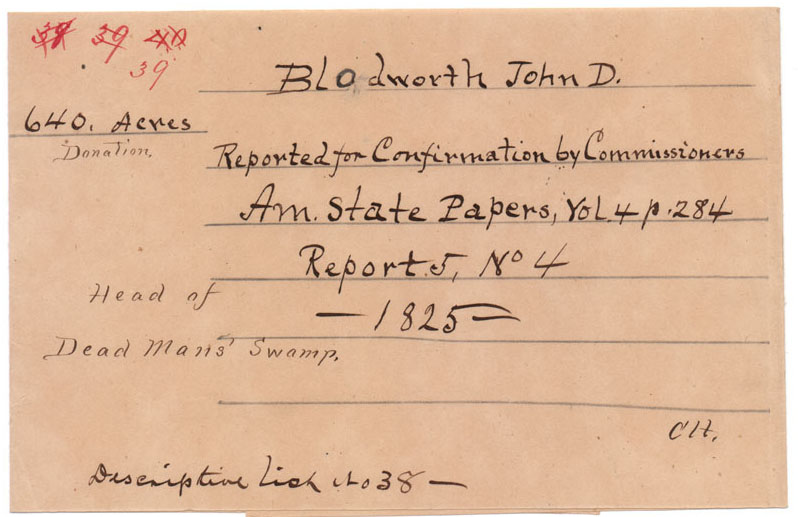 38 39 40
39
Blodworth John D.
640. Acres
Donation.
Reported for Confirmation by Commissioners
Am. State Papers, Vol. 4 p. 284
Report. 5, No 4
— 1825 —
Head of
Dead Mans' Swamp.
C H.
Descriptive List No 38 —